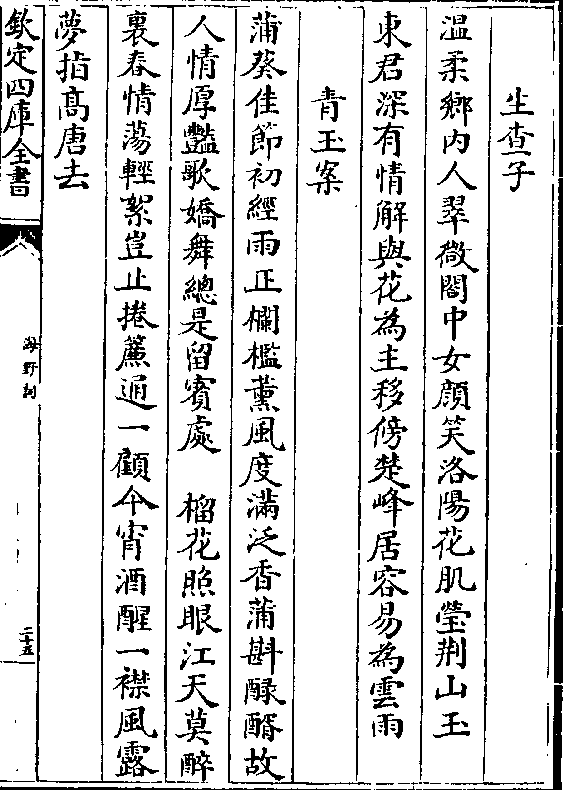 生查子
温柔鄉内人翠微閣中女顔笑洛陽花肌瑩荆山玉
東君深有情解與花為主移傍楚峰居容易為雲雨
青玉案
蒲葵佳節初經雨正欄檻薰風度滿泛香蒲斟醁醑故
人情厚豔歌嬌舞總是留賓處　榴花照眼江天莫醉
裏春情蕩輕絮豈止捲簾通一顧今宵酒醒一襟風露
夢指髙唐去
欽定四庫全書
海野詞
二十五